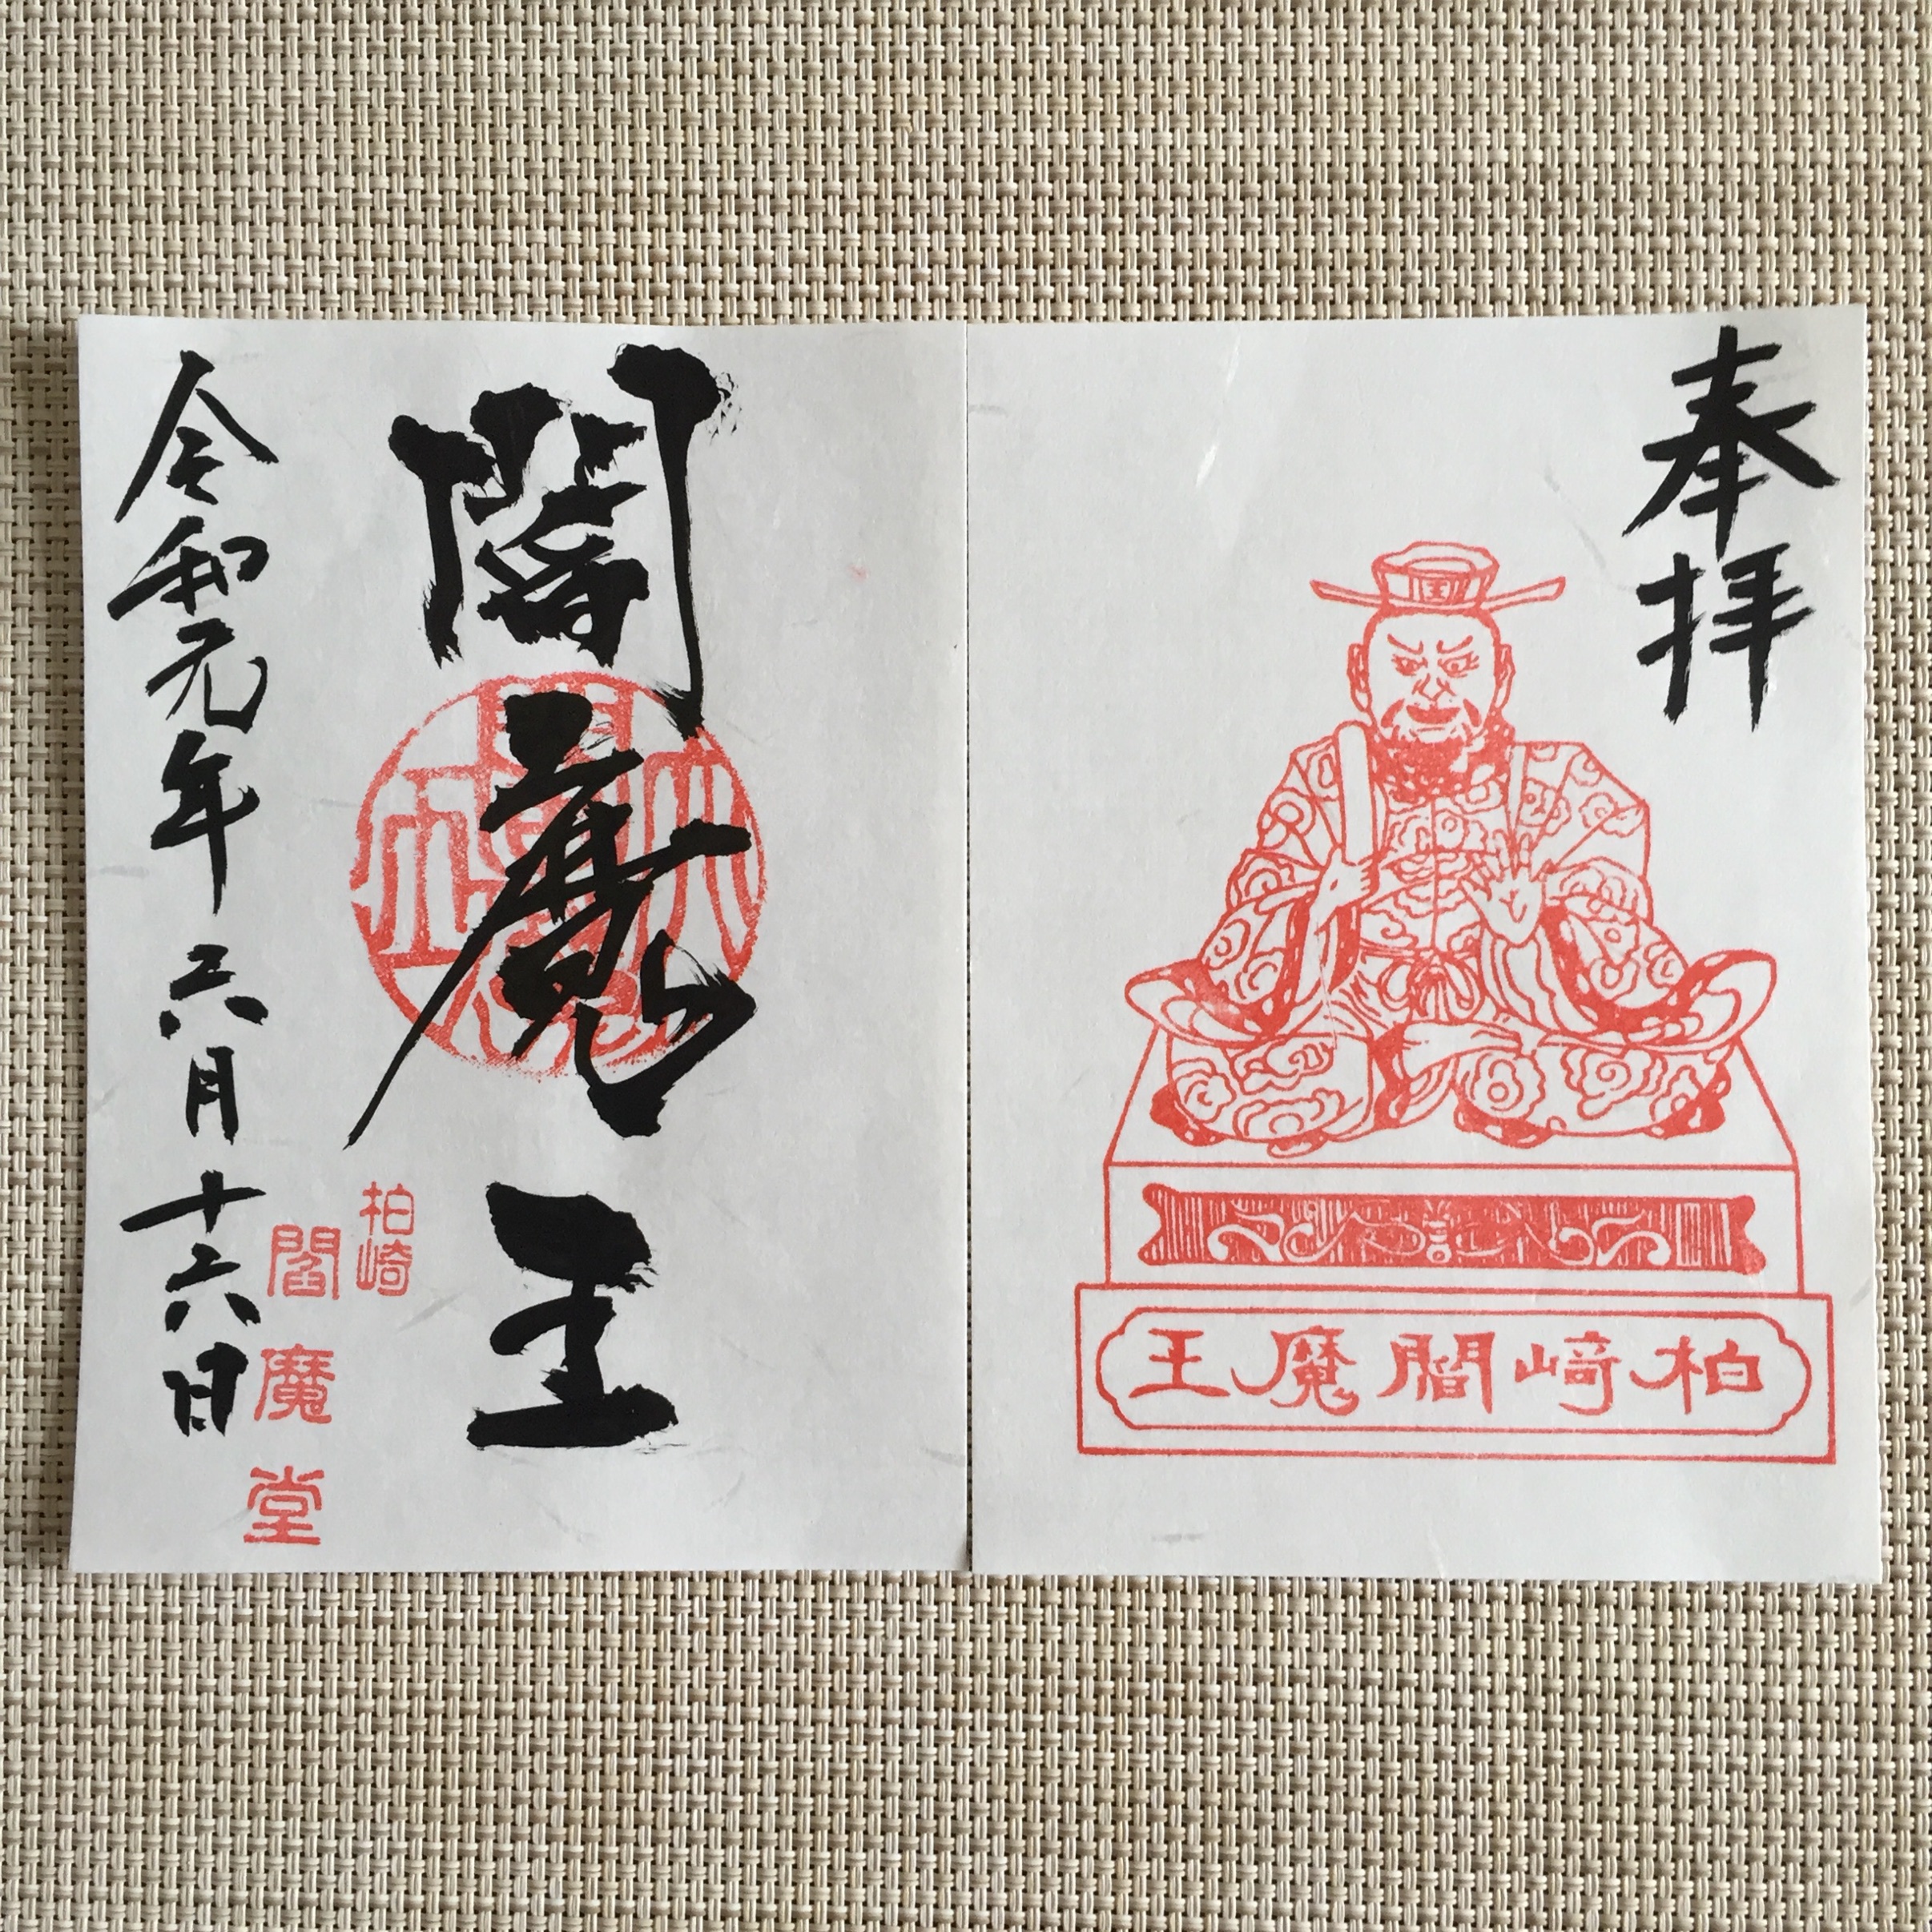 奉拝
王
柏崎閻魔王
閻魔王
柏崎
閻魔堂
令和元年 六月十六日